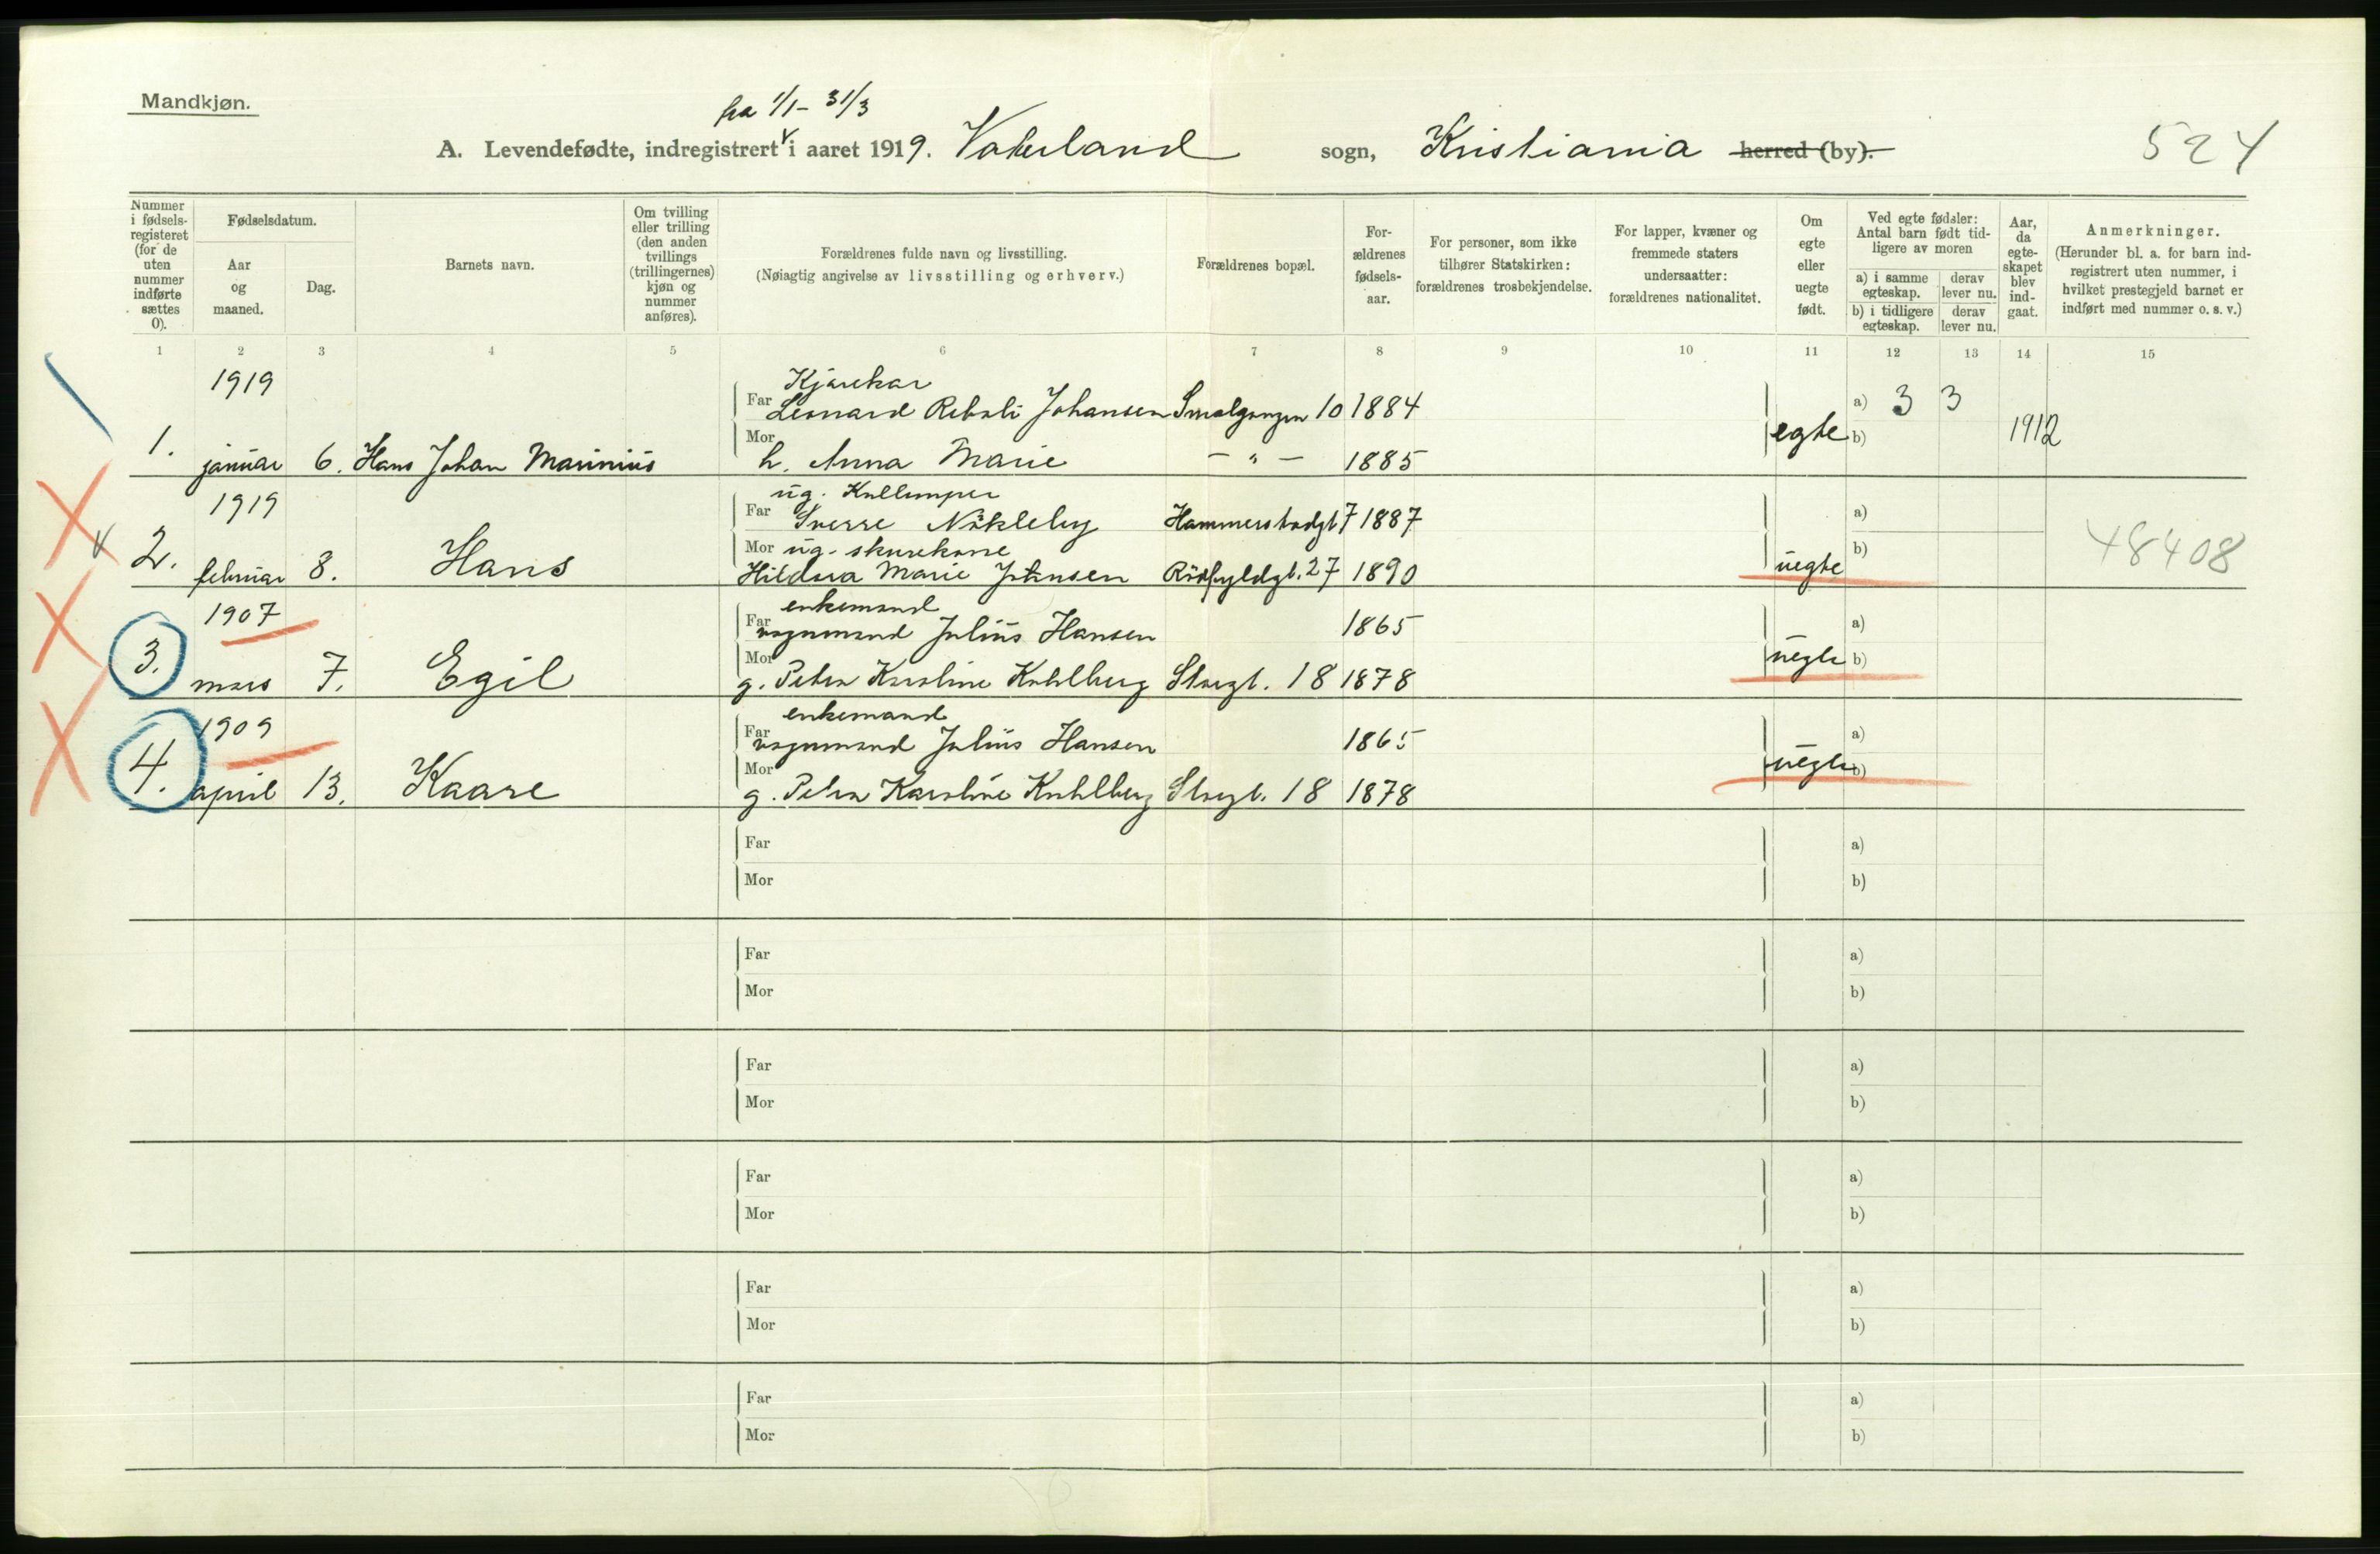 Mandkjøn.
fra 1/1 - 31/3
A. Levendefødte, indregistrert i aaret 1919. Vaterland sogn, Kristiania herred (by).
524
Nummer i fødsels-registeret (for de uten nummer indførte sættes 0).
Fødselsdatum.
Aar og maaned.
Dag.
Barnets navn.
Om tvilling eller trilling (den anden tvillings (trillingernes) kjøn og nummer anføres).
Forældrenes fulde navn og livsstilling.
(Nøiagtig angivelse av livsstilling og erhverv.)
Forældrenes bopæl.
For-ældrenes fødsels-aar.
For personer, som ikke tilhører Statskirken: forældrenes trosbekjendelse.
For lapper, kvæner og fremmede staters undersaatter: forældrenes nationalitet.
Om egte eller uegte født.
Ved egte fødsler: Antal barn født tid-ligere av moren
a) i samme egteskap.
derav lever nu.
b) i tidligere egteskap.
derav lever nu.
Aar, da egte-skapet blev ind-gaat.
Anmerkninger.
(Herunder bl. a. for barn ind-registrert uten nummer, i hvilket prestegjeld barnet er indført med nummer o. s. v.)
1 2 3 4 5 6 7 8 9 10 11 12 13 14 15
1919 Kjørekar
Far Leonard Johansen Smalgangen 10 1884 a) 3 3
1. januar 6. Hans Johan Marinius
Mor h. Anna Marie - " - 1885 egte b) 1912
1919 ug.
Far Sverre Nökleby Hammerstadgt 7 1887 a)
2. februar 8. Hans
Mor ug.
Hildora Marie Johnsen Rödfyldgt. 27 1890 uegte b) 48408
1907 enkemand
Far vognmand Julius Hansen 1865 a)
3. mars 7. Egil
Mor g. Petra Karoline Kahlberg Storgt. 18 1878 uegte b)
1909 enkemand
Far vognmand Julius Hansen 1865 a)
4. april 13. Kaare
Mor g. Petra Karoline Kahlberg Storgt. 18 1878 uegte b)
Far a)
Mor b)
Far a)
Mor b)
Far a)
Mor b)
Far a)
Mor b)
Far a)
Mor b)
Far a)
Mor b)